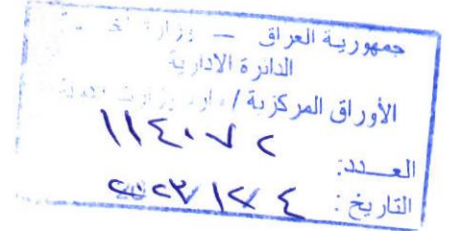 جمهورية العراق — وزارة
الدائرة الادارية
الأوراق المركزية /
العـــدد: ١١٤٠٧٢
التاريخ: ٢٠٢٣/١٢/٤